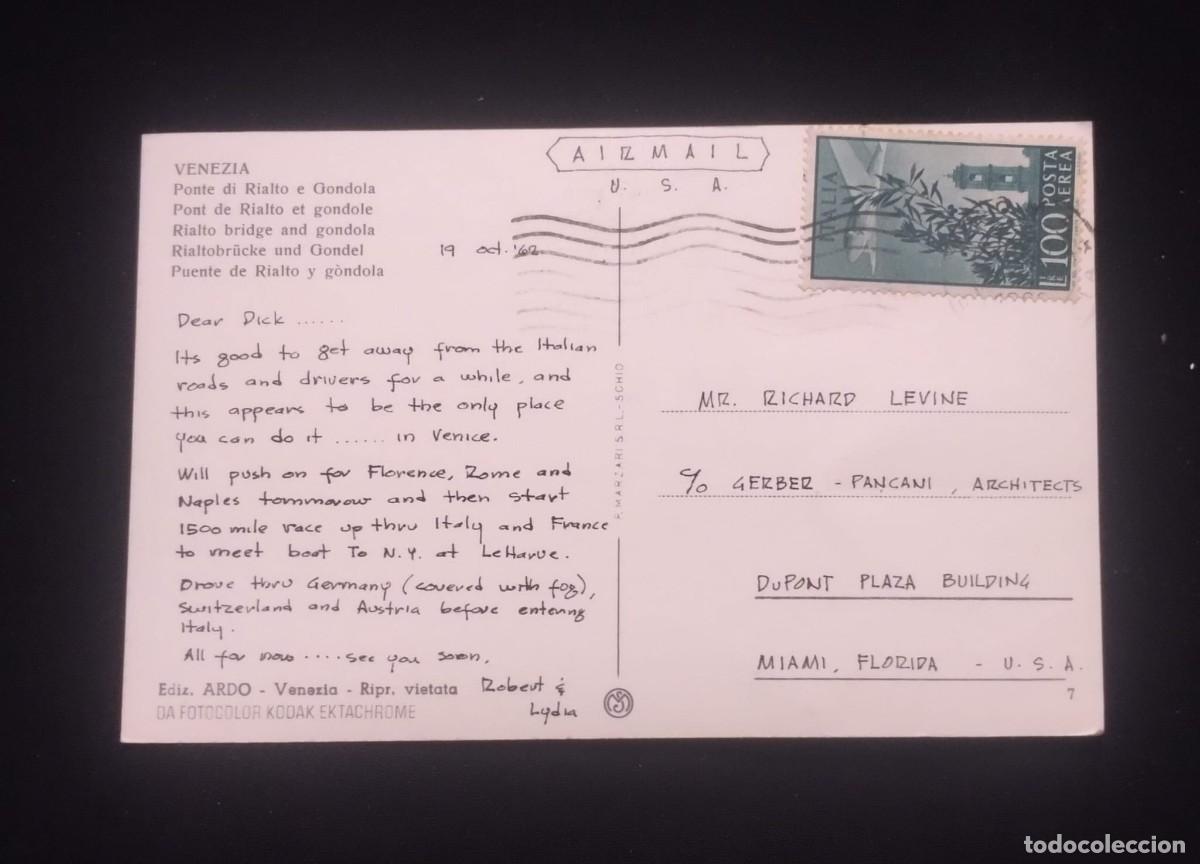 VENEZIA
Ponte di Rialto e Gondola
Pont de Rialto et gondole
Rialto bridge and gondola
Rialtobrücke und Gondel
Puente de Rialto y gòndola
19 oct. '62
Dear Dick ......
Its good to get away from the Italian
roads and drivers for a while, and
this appears to be the only place
you can do it ...... in Venice.
Will push on for Florence, Rome and
Naples tommorow and then start
1500 mile race up thru Italy and France
to meet boat To N.Y. at LeHavre.
Drove thru Germany (covered with fog),
Switzerland and Austria before entering
Italy.
All for now .... see you soon.
Robert &
Lydia
Ediz. ARDO - Venezia - Ripr. vietata
DA FOTOCOLOR KODAK EKTACHROME
P. MARZARI S.R.L. - SCHIO
AIRMAIL
U. S. A.
ITALIA
POSTA
AEREA
LIRE 100
MR. RICHARD LEVINE
c/o GERBER - PANCANI, ARCHITECTS
DUPONT PLAZA BUILDING
MIAMI, FLORIDA - U.S.A.
7
todocoleccion